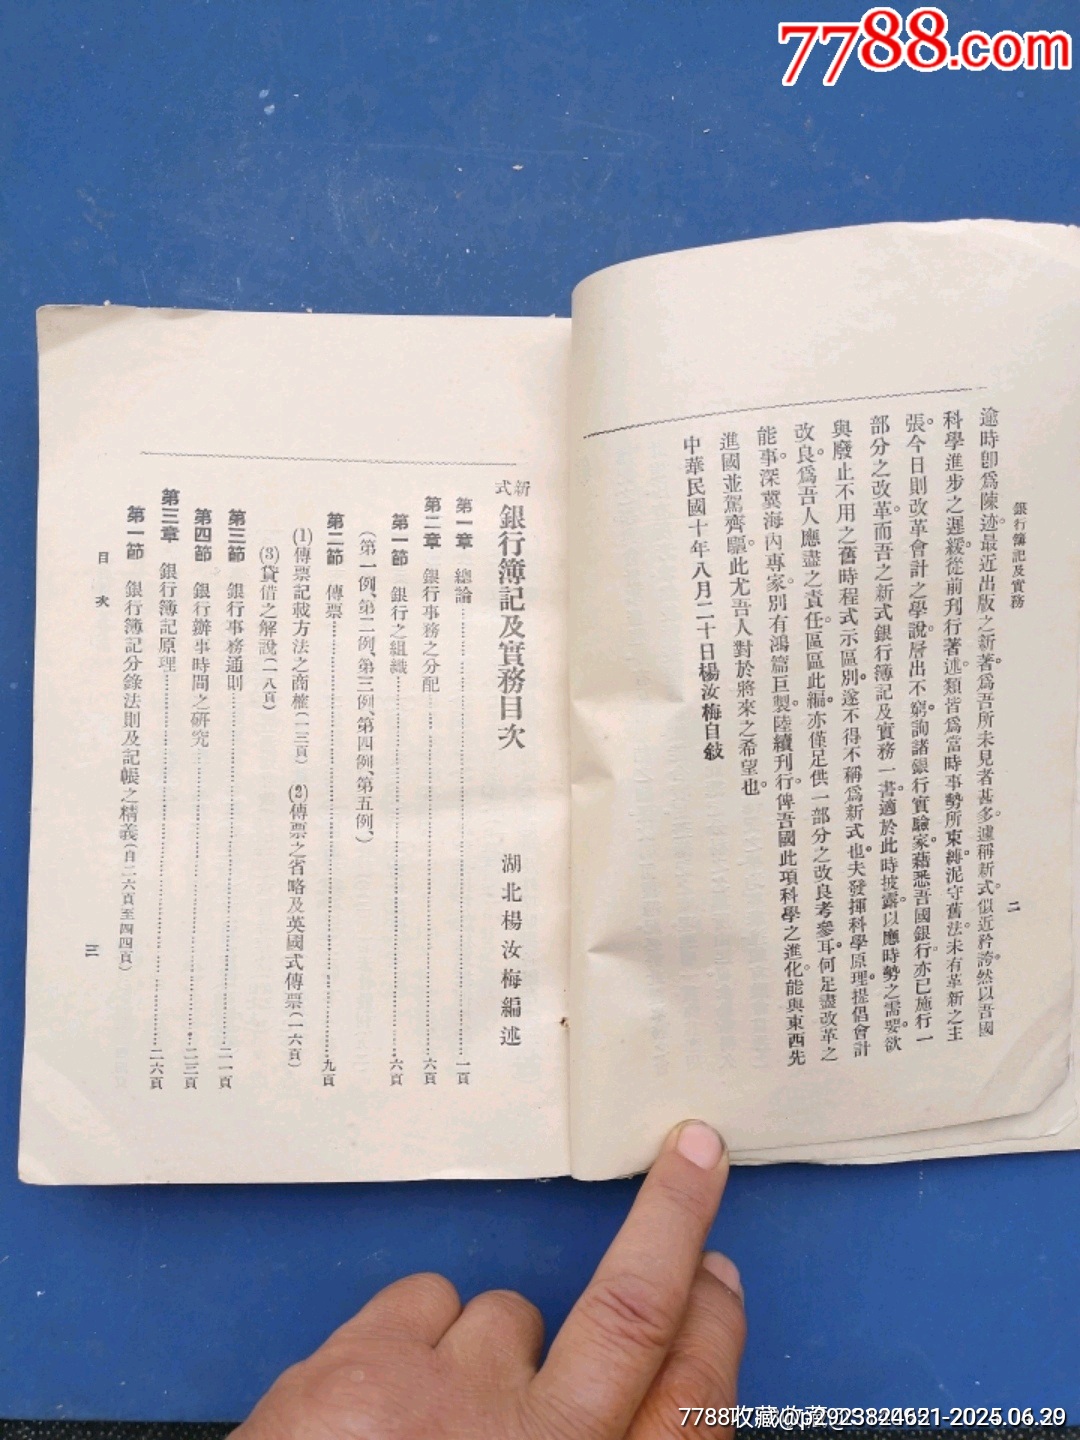 7788.com
銀行簿記及實務
二
逾時卽爲陳迹。最近出版之新著。爲吾所未見者甚多。遽稱新式。似近矜誇。然以吾國
科學進步之遲緩。從前刊行著述。類皆爲當時事勢所束縛。泥守舊法。未有革新之主
張。今日則改革會計之學說。層出不窮。詢諸銀行實驗家。藉悉吾國銀行。亦已施行一
部分之改革。而吾之新式銀行簿記及實務一書。適於此時披露。以應時勢之需要。欲
與廢止不用之舊時程式示區別。遂不得不稱爲新式也。夫發揮科學原理。提倡會計
改良。爲吾人應盡之責任。區區此編。亦僅足供一部分之改良參考耳。何足盡改革之
能事。深冀海內專家。別有鴻篇巨製。陸續刊行。俾吾國此項科學之進化。能與東西先
進國並駕齊驅。此尤吾人對於將來之希望也。
中華民國十年八月二十日楊汝梅自敍
新式 銀行簿記及實務目次
湖北楊汝梅編述
第一章 總論 一頁
第二章 銀行事務之分配 六頁
第一節 銀行之組織 六頁
(第一例、第二例、第三例、第四例、第五例、)
第二節 傳票 九頁
(1)傳票記載方法之商榷(一三頁) (2)傳票之省略及英國式傳票(一六頁)
(3)貸借之解說(一八頁)
第三節 銀行事務通則 二一頁
第四節 銀行辦事時間之研究 二三頁
第三章 銀行簿記原理 二六頁
第一節 銀行簿記分錄法則及記帳之精義(自二六頁至四四頁)
目次
三
7788收藏@p2923824621-2025.06.29